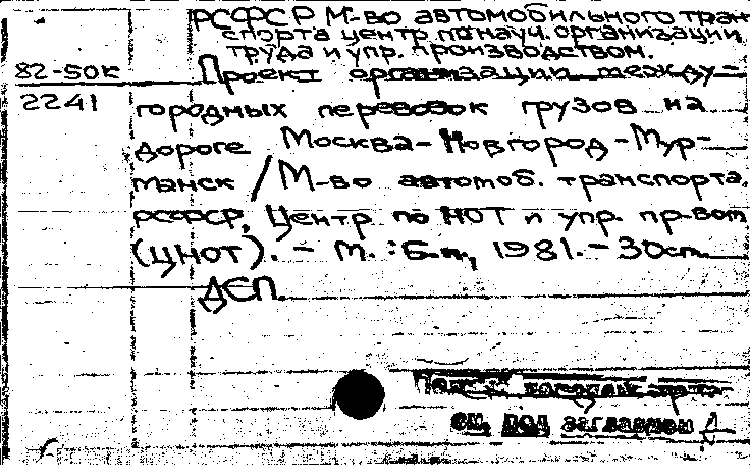 РСФСР М-во автомобильного тран-
спорта центр по науч. организации
труда и упр. производством.
82-50к Проект организации между-
2241 городных перевозок грузов на
дороге Москва-Новгород-Мур-
манск / М-во автомоб. транспорта
РСФСР, Центр по НОТ и упр. пр-вом
(ЦНОТ). - М. : Б.и., 1981. - 30ст.
ДЕП.
см. под заглавием